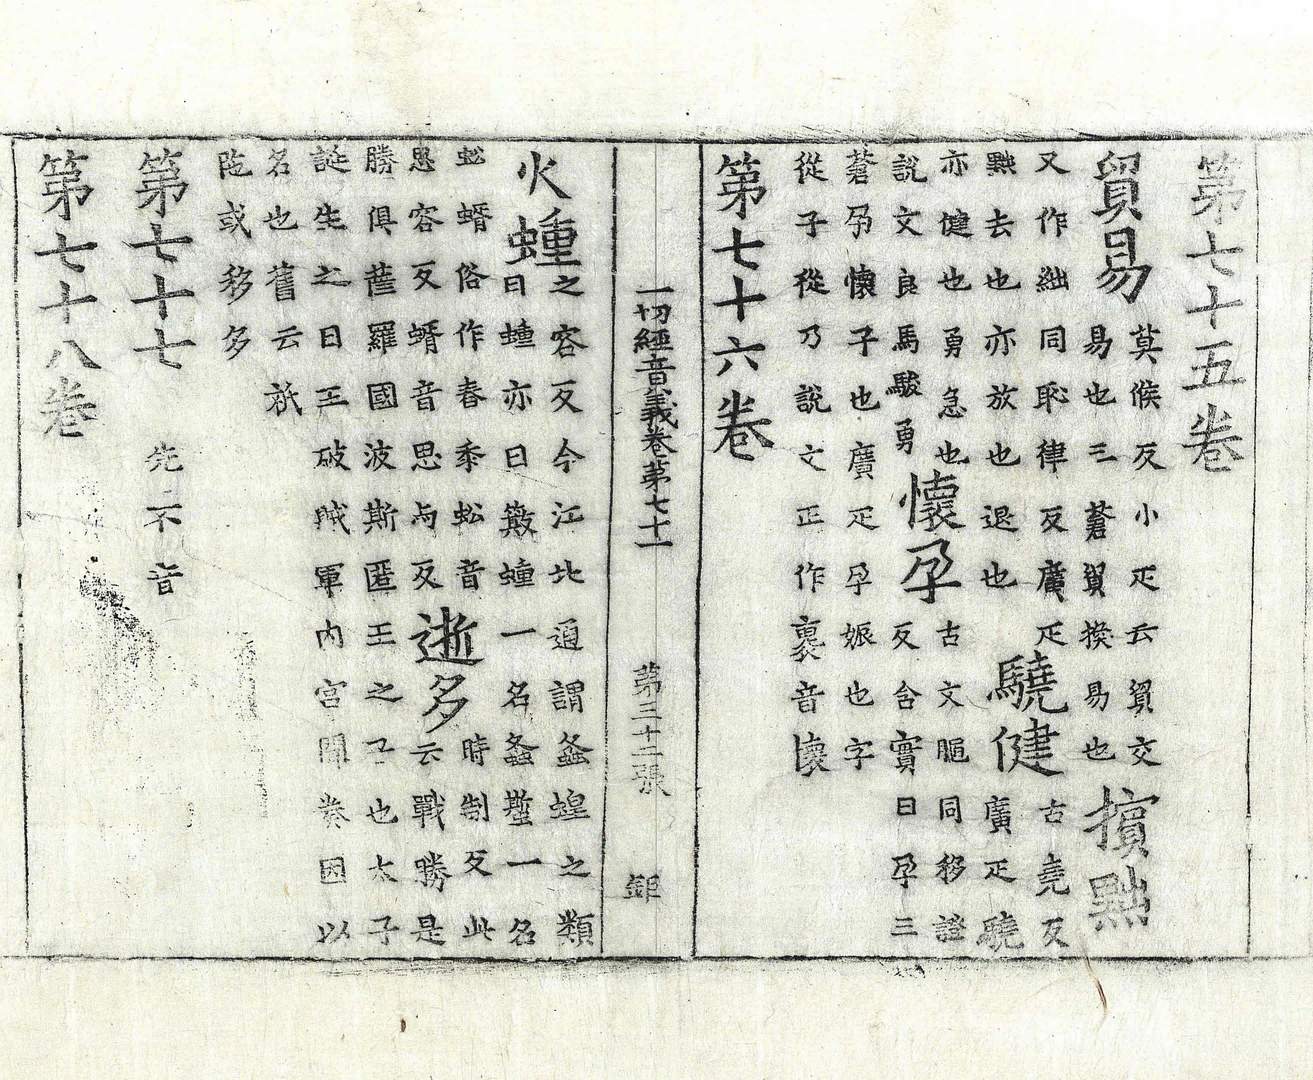 第七十五卷
貿易莫候反小疋云貿交
易也三蒼貿換易也擯黜
又作絀同恥律反廣疋
黜去也亦放也退也驍健古堯反
廣疋驍
亦健也勇急也
說文良馬駿勇懷孕古文𦜽同移證
反含實曰孕三
蒼孕懷子也廣疋孕娠也字
從子從乃說文正作褱音懷
第七十六卷
一切經音義卷第七十一 第三十二張 鉅
火蝩之容反今江北通謂螽蝗之類
曰蝩亦曰簸蝩一名螽蟴一名
蚣蝑俗作舂黍蚣音
思容反蝑音思与反逝多時制反此
云戰勝是
勝俱薩羅國波斯匿王之子也太子
誕生之日王破賊軍內宮聞奏因以
名也舊云祇
陁或移多
第七十七 先不音
第七十八卷